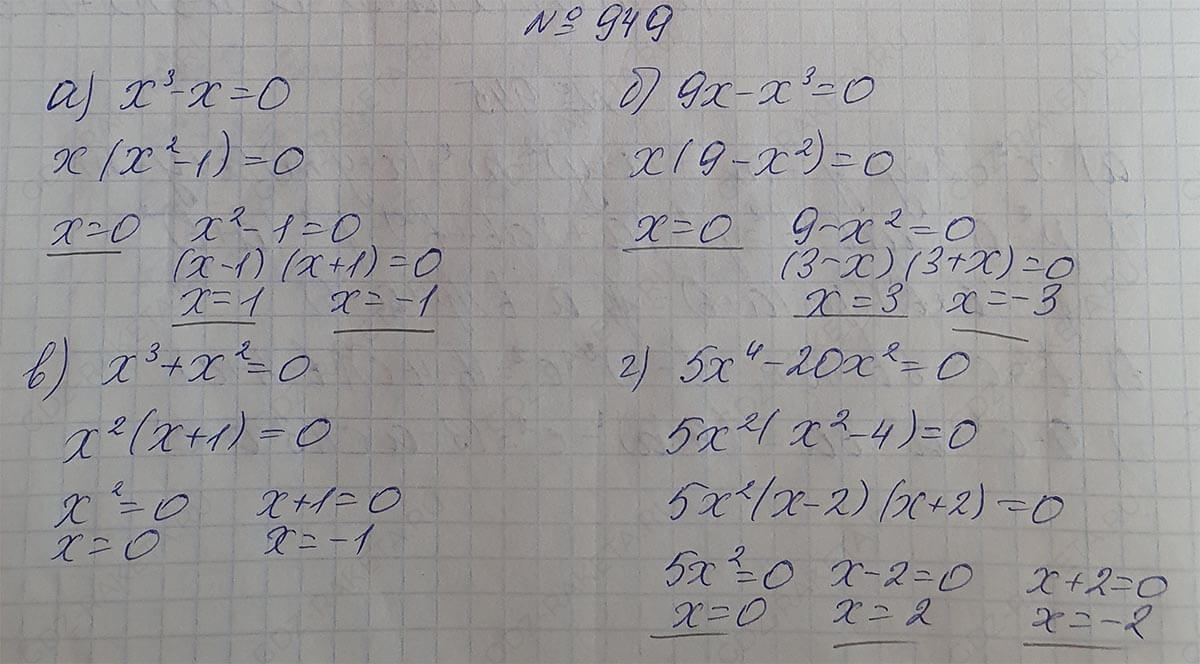 № 949
а) x³-x=0
x(x²-1)=0
x=0 x²-1=0
(x-1)(x+1)=0
x=1 x=-1
б) 9x-x³=0
x(9-x²)=0
x=0 9-x²=0
(3-x)(3+x)=0
x=3 x=-3
в) x³+x²=0
x²(x+1)=0
x²=0 x+1=0
x=0 x=-1
г) 5x⁴-20x²=0
5x²(x²-4)=0
5x²(x-2)(x+2)=0
5x²=0 x-2=0 x+2=0
x=0 x=2 x=-2